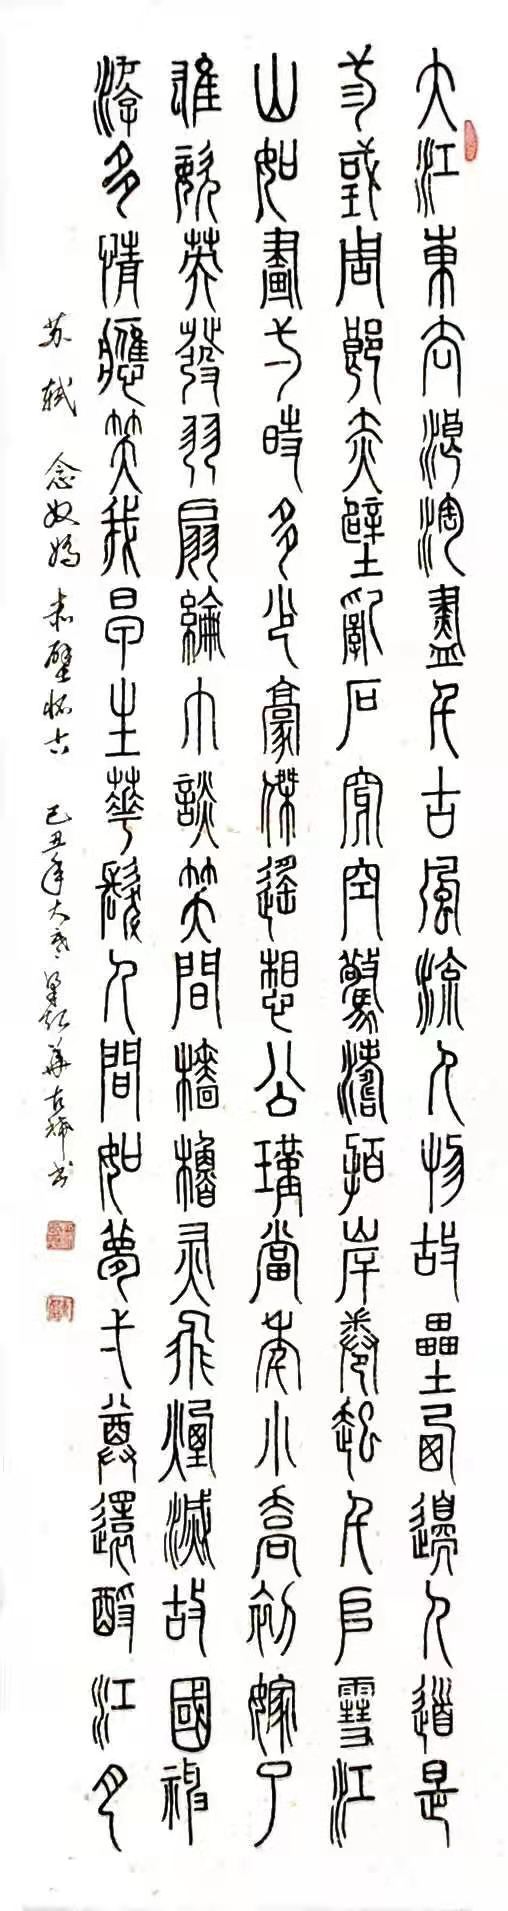 大江東去浪淘盡千古風流人物故壘西邊人道是
弎或周郎赤壁亂石穿空驚濤拍岸卷起千𠂤雪江
山如畫弌時多少豪傑遙想公瑾當年小喬初嫁了
雄姿英發羽扇綸巾談笑間檣櫓灰飛煙滅故國神
游多情應笑我早生華髮人間如夢弌尊還酹江月
苏轼 念奴嬌 赤壁怀古 己丑年大寒 梁華古稀书